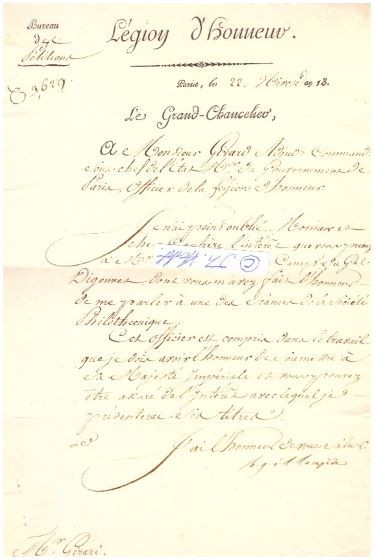 Bureau
des
Pétitions
Légion d'honneur.
Paris, le 22 Nivose an 13.
Le Grand-Chancelier,
A Monsieur Gérard Adjud. Command.
sous chef de l'Etat M.or du Gouvernement de
Paris, Officier de la Légion d'honneur
Je n'ai point oublié, Monsieur et
cher Confrère l'intérêt que vous prenez
à Mr. Camp du Gal.
Digonnet, dont vous m'avez fait l'honneur
de me parler à une des Séances de la Société
Philotechnique
Cet officier est compris dans le travail
que je dois avoir l'honneur de soumettre à
Sa Majesté Impériale et vous pouvez
être assuré de l'intérêt avec lequel je
présenterai ses titres
J'ai l'honneur de vous saluer
Mr. Gérard.